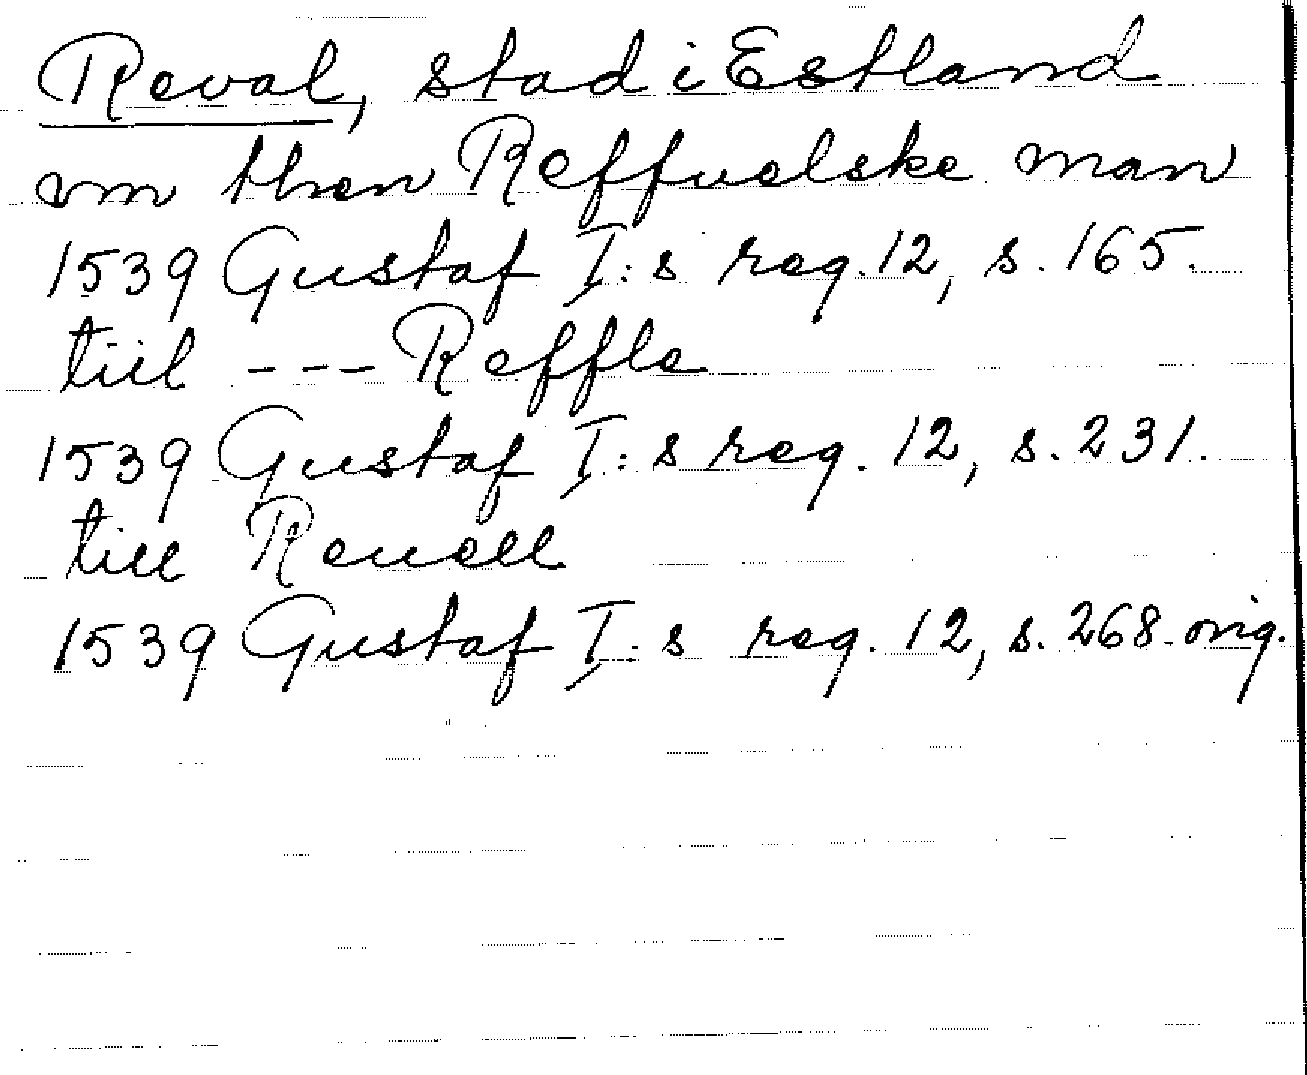 Reval, stad i Estland
vm then Reffuelske man
1539 Gustaf I:s reg. 12, s. 165.
tiil --- Reffle
1539 Gustaf I:s reg. 12, s. 231.
till Reuell
1539 Gustaf I:s reg. 12, s. 268 orig.